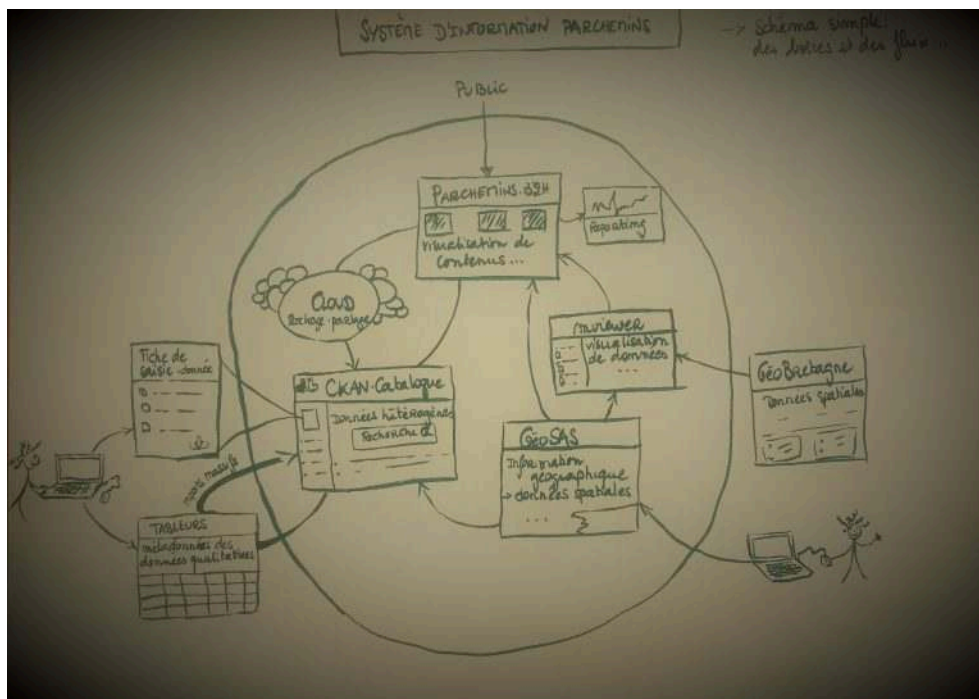 SYSTÈME D'INFORMATION PARCHEMINS
→ Schéma simple:
des boîtes et des flux...
PUBLIC
PARCHEMINS.
visualisation de
contenus...
Reporting
CLOUD
Stockage-partage
mviewer
visualisation
de données
...
Fiche de
saisie-donnée
CKAN-Catalogue
Données hétérogènes
Recherche
GéoBretagne
Données spatiales
GéoSAS
Information
géographique
→ données spatiales
...
imports massifs
TABLEURS
métadonnées des
données qualitatives